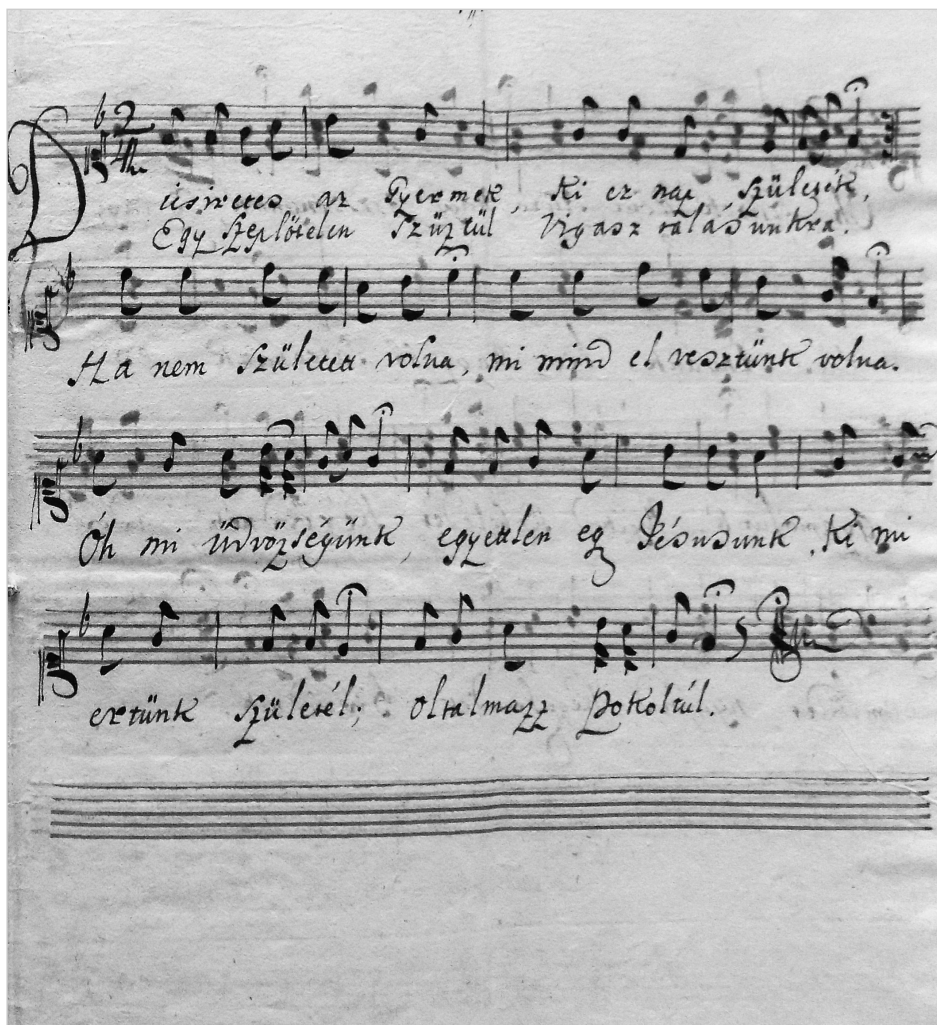 Dücsiretes az Gyermek, Ki ez nap, Születék,
Egy Szeplőtelen Szüztül Vigasz talásunkra.
Ha nem Születet volna, mi mind el vesztünk volna.
Óh mi üdvözségünk, egyetlen eg Jésusunk, Ki mi
ertünk Születél; oltalmazz Pokoltúl.